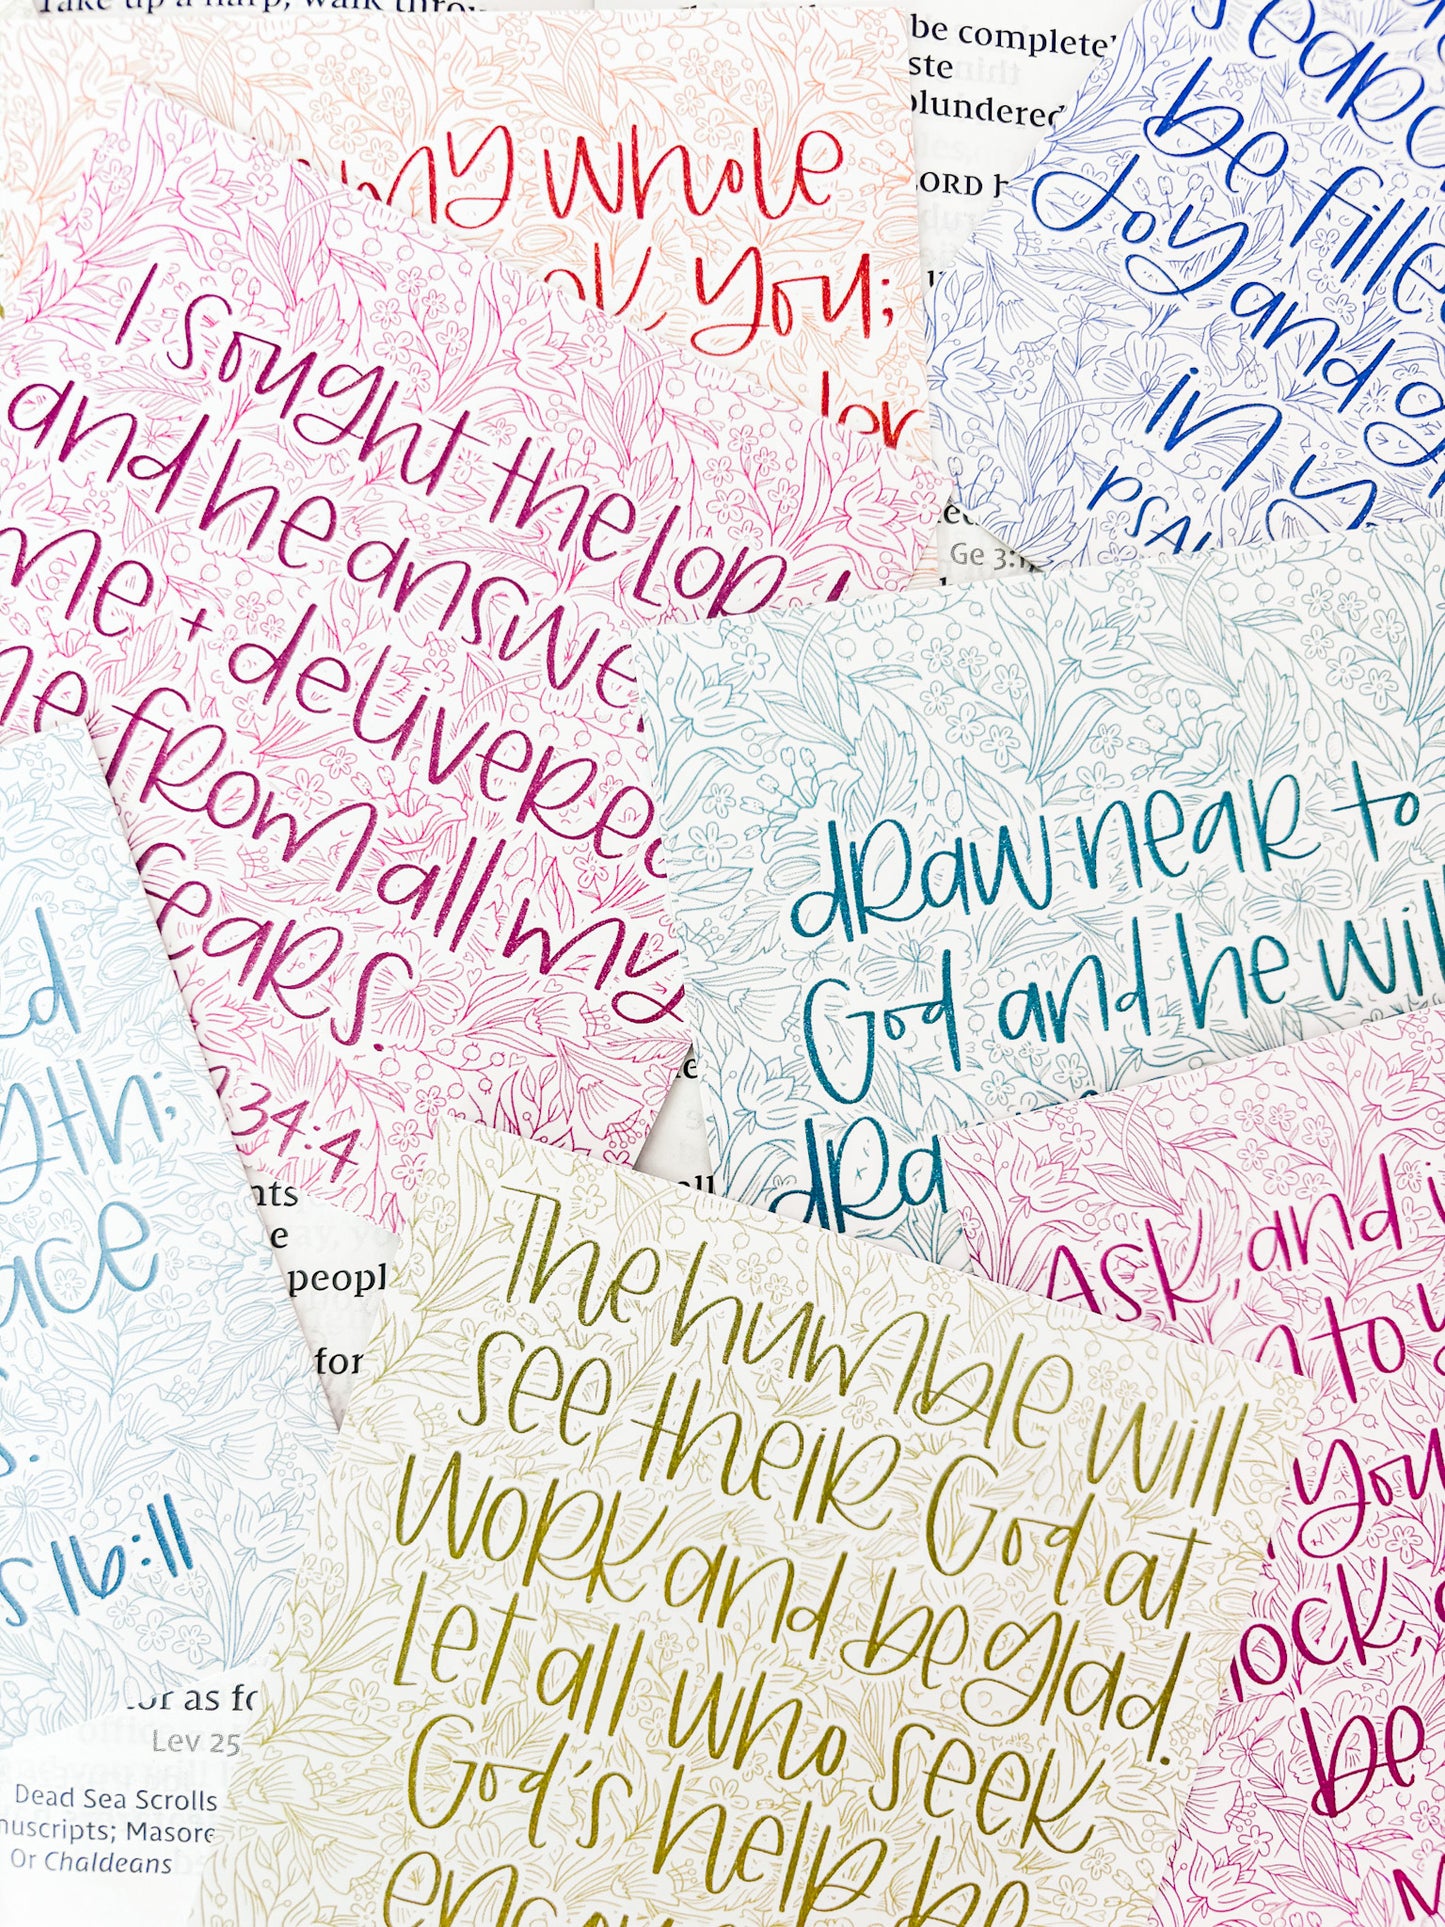 Take up a harp, walk
be complete
plundered
my whole
you;
be filled
Joy and
in
I sought the Lord
and he answe
me + delivered
me from all my
fears.
34:4
Ge 3:1
draw near to
God and he will
dra
16:11
nts
e
peopl
for
Ask, and i
n to y
you
ock,
be
The humble will
see their God at
work and be glad.
Let all who seek
God's help be
or as fo
Lev 25
Dead Sea Scrolls
nuscripts; Masore
Or Chaldeans